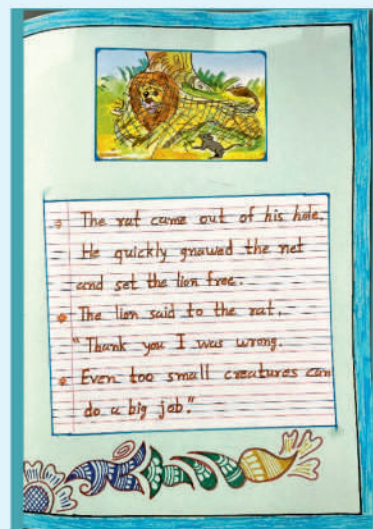 The rat came out of his hole.
He quickly gnawed the net
and set the lion free.
The lion said to the rat,
"Thank you I was wrong.
Even too small creatures can
do a big job."